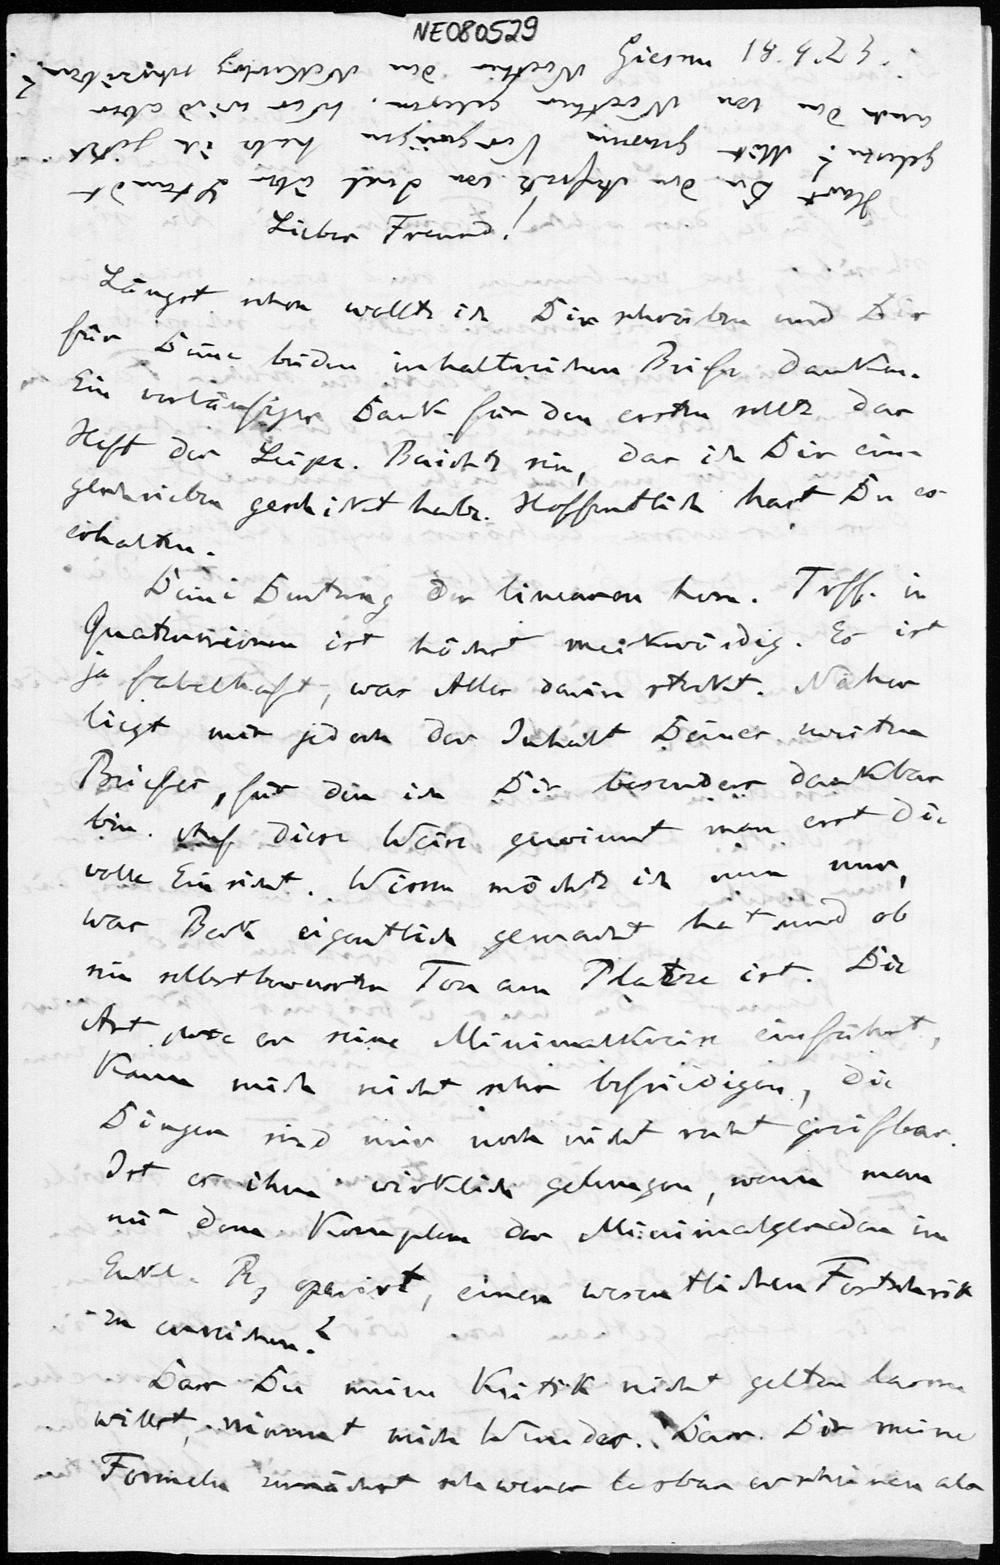 NE080529
Giessen 18.4.23.
Lieber Freund!
Längst schon wollte ich Dir schreiben und Dir
für Deine beiden inhaltreichen Briefe danken.
Ein vorläufiger Dank für den ersten sollte das
Heft der Leipz. Berichte sein, das ich Dir ein-
geschrieben geschickt habe. Hoffentlich hast Du es
erhalten.
Deine Deutung der linearen hom. Trff. in
Quaternionen ist höchst merkwürdig. Es ist
ja fabelhaft, was Alles darin steckt. Näher
liegt mir jedoch der Inhalt Deines zweiten
Briefes, für den ich Dir besonders dankbar
bin. Auf diese Weise gewinnt man erst die
volle Einsicht. Wissen möchte ich nun nur,
was Beck eigentlich gemacht hat und ob
sein selbstbewusster Ton am Platze ist. Die
Art, wie er seine Minimalkreise einführt,
kann mich nicht sehr befriedigen, die
Dinger sind mir noch nicht recht greifbar.
Ist es ihm wirklich gelungen, wenn man
mit dem Komplex der Minimalgeraden im
Eukl. R3 operirt, einen wesentlichen Fortschritt
zu erreichen?
Dass Du meine Kritik nicht gelten lassen
willst, nimmt mich Wunder. Dass Dir meine
Formeln zunächst schwerer lesbar erscheinen als
Hast Du den Aufsatz von Engel über Staudt
gelesen? Mit grossem Vergnügen habe ich jetzt
auch den von Noether gelesen. Wer wird aber
Noether den Nekrolog schreiben?